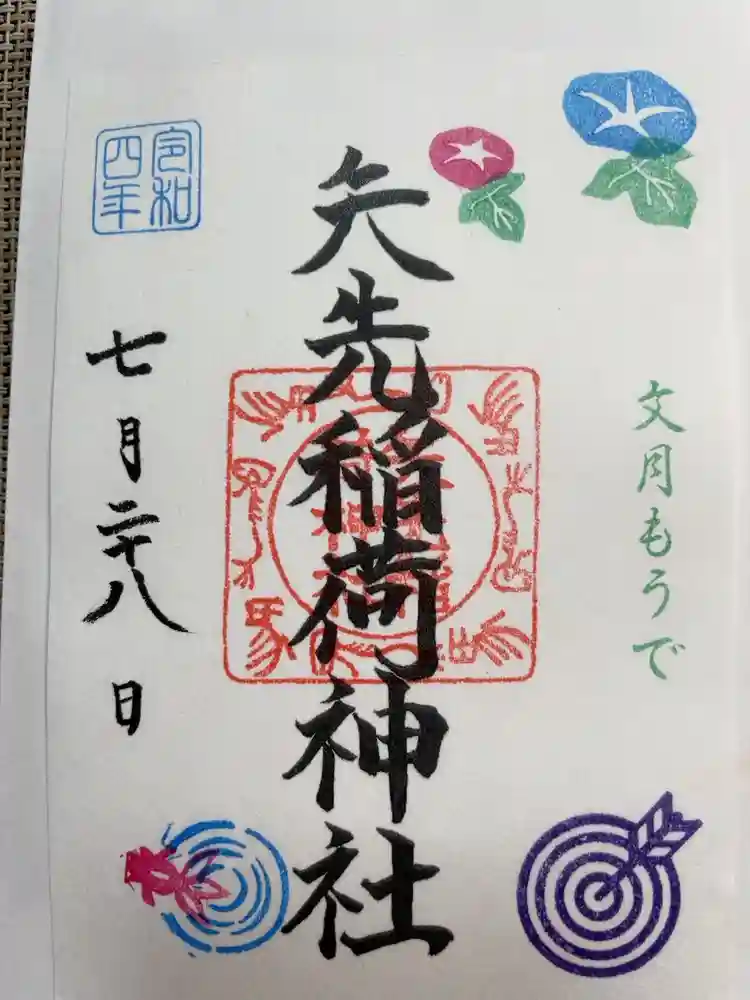 文月もうで
矢先稲荷神社
令和
四年
七月二十八日